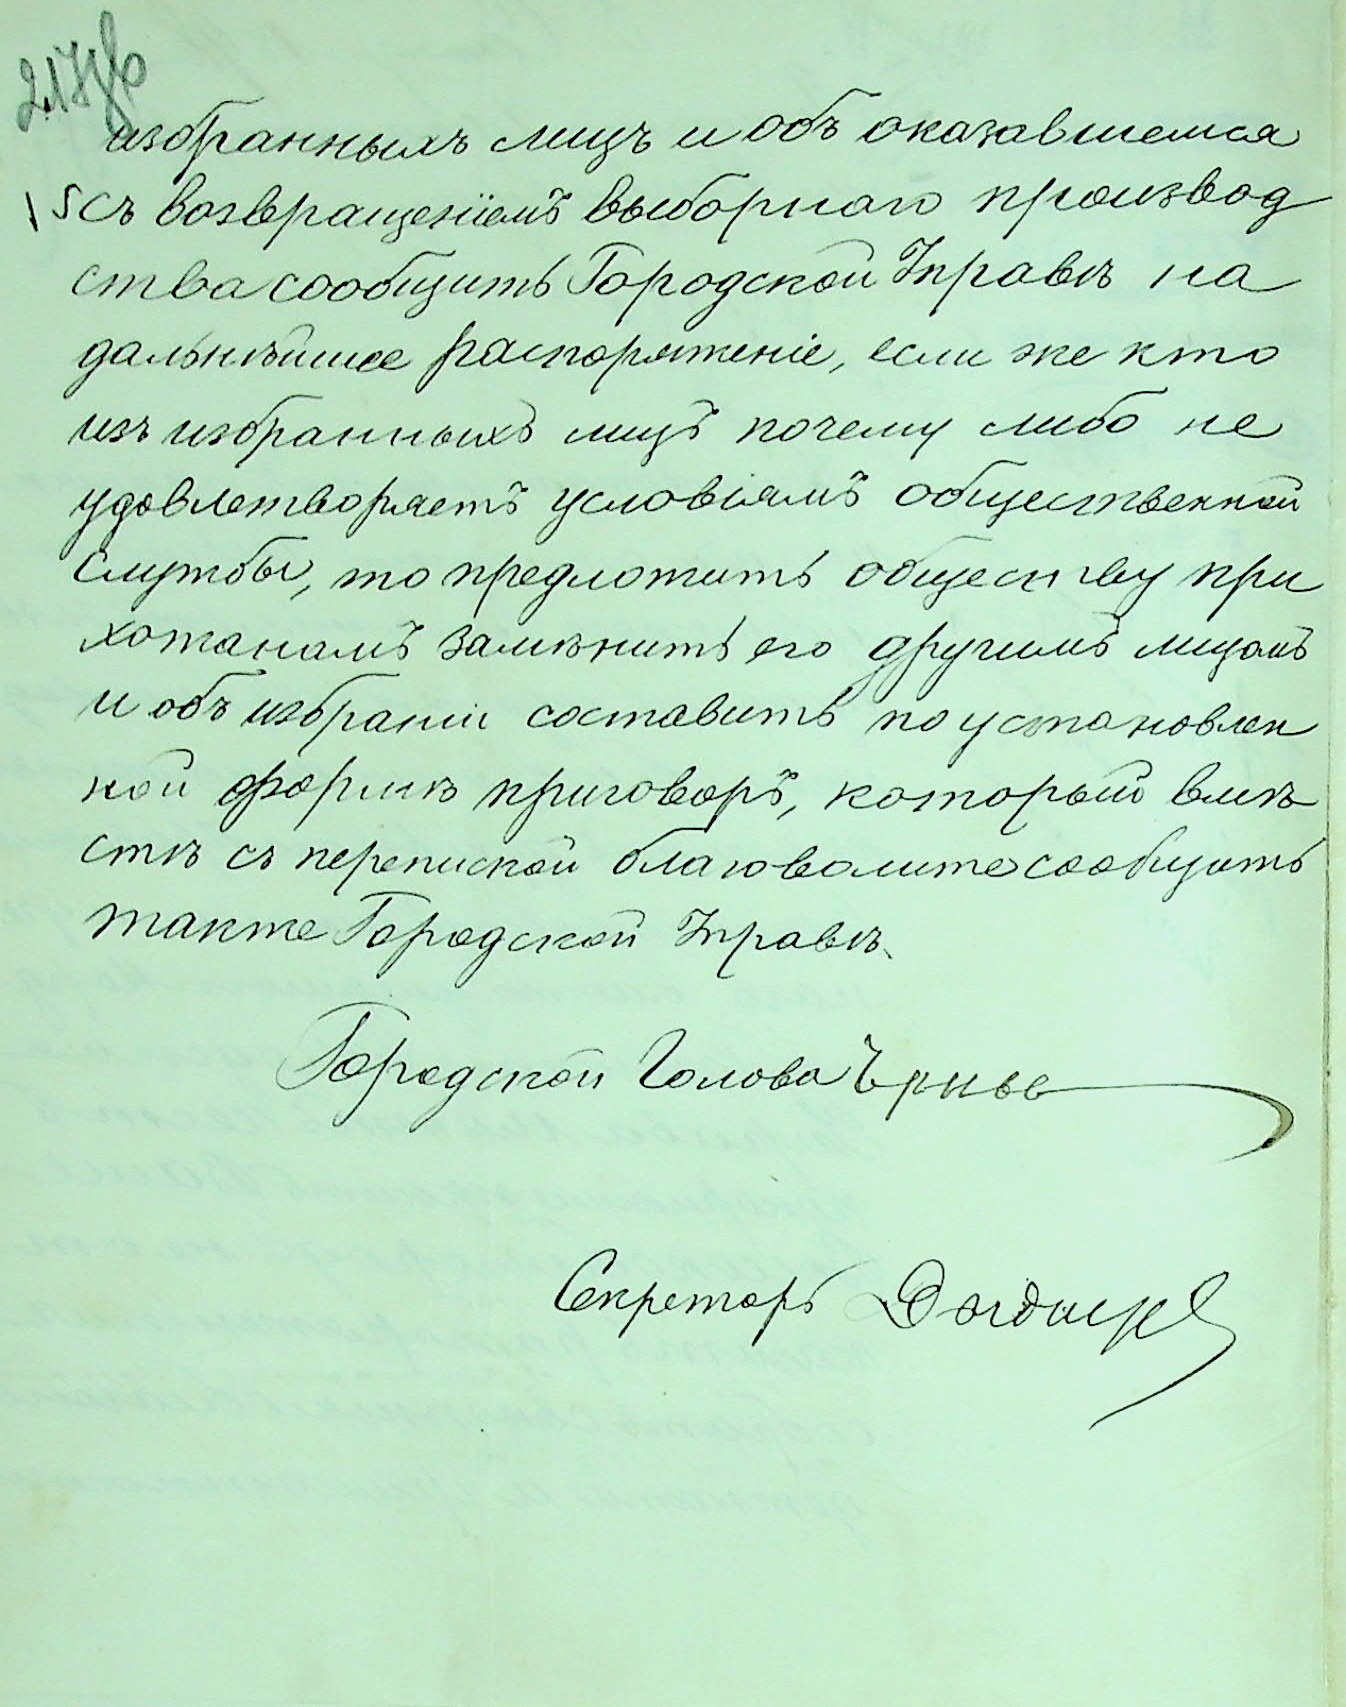 217 об
избранныхъ лицъ и объ оказавшемся
съ возвращеніемъ выборнаго производ
ства сообщить Городской Управѣ на
дальнѣйшее распоряженіе, если же кто
изъ избранныхъ лицъ почему либо не
удовлетворяетъ условіямъ общественной
службы, то предложить обществу при
хожанамъ замѣнить его другимъ лицомъ
и объ избраніи составить по установлен
ной формѣ приговоръ, который вмѣ
стѣ съ перепиской благоволите сообщить
также Городской Управѣ.
Городской Голова
Секретарь